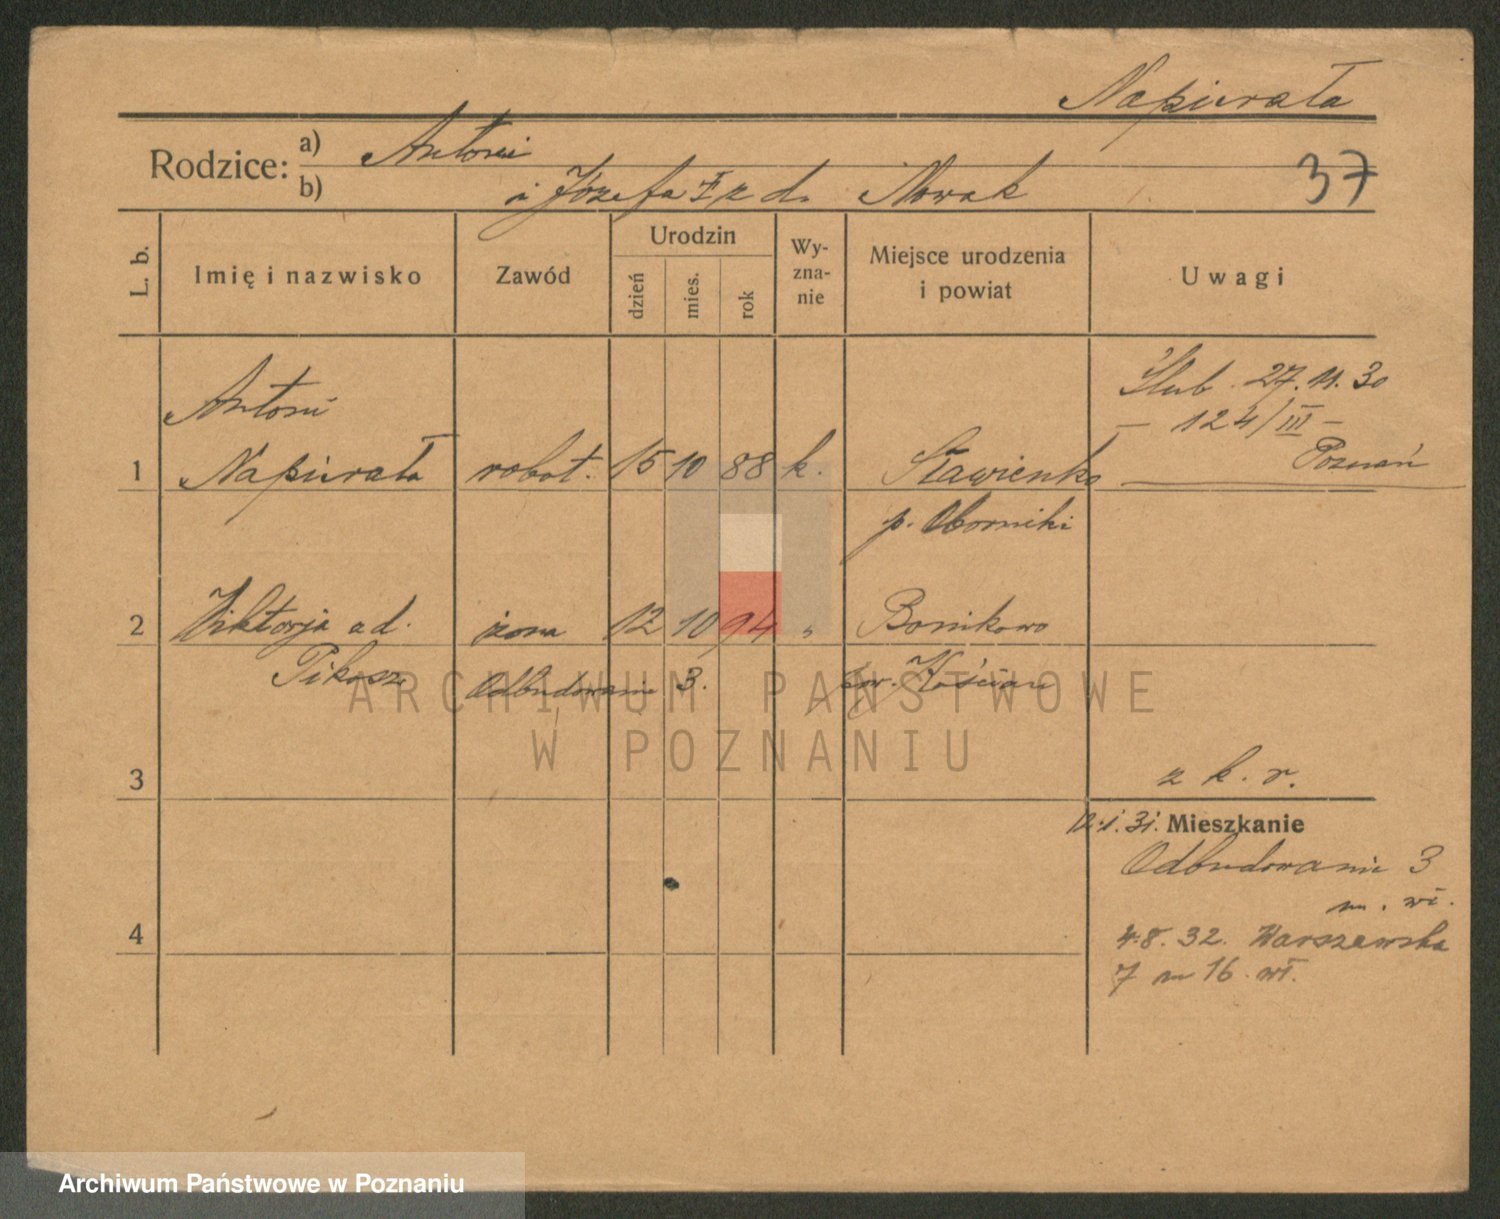 Napierała
Rodzice: a) Antoni
b) i Józefa z d. Nowak
37
L. b. Imię i nazwisko Zawód Urodzin dzień mies. rok Wy-zna-nie Miejsce urodzenia i powiat Uwagi
Ślub 27.11.30
– 124/III –
Poznań
Antoni
1 Napierała robot. 15 10 88 k. Sławienko
p. Oborniki
2 Wiktorja ad. żona 12 10 94 „ Bonikowo
Pikosz Odbudowanie 3. pow. Kościan
ARCHIWUM PAŃSTWOWE
W POZNANIU
3 z k. r.
12.1.31. Mieszkanie
Odbudowanie 3
m. wł.
4
4.8.32. Warszawska
7 m 16 wł.
Archiwum Państwowe w Poznaniu